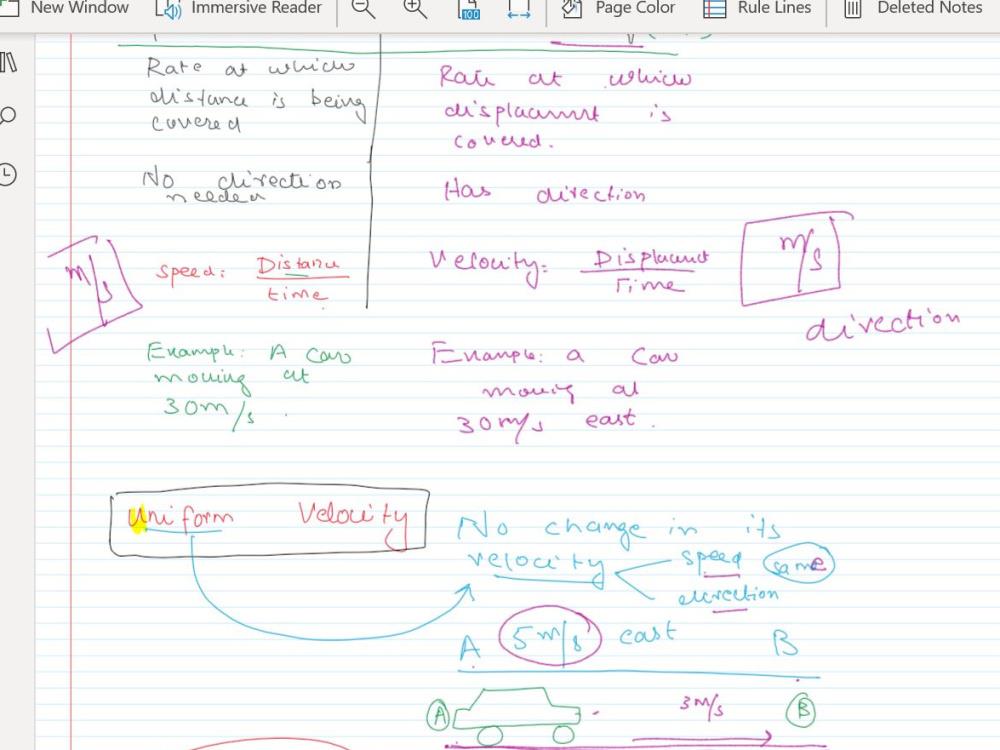 New Window Immersive Reader 100 Page Color Rule Lines Deleted Notes
Rate at which
distance is being
covered
No direction
needed
m/s
Speed: Distance
time
Example: A car
moving at
30m/s.
Rate at which
displacement is
covered.
Has direction
Velocity= Displacement
Time
m/s
direction
Example: a car
moving at
30m/s east.
Uniform Velocity
No change in its
velocity speed same
direction
A 5m/s east B
A 3m/s B